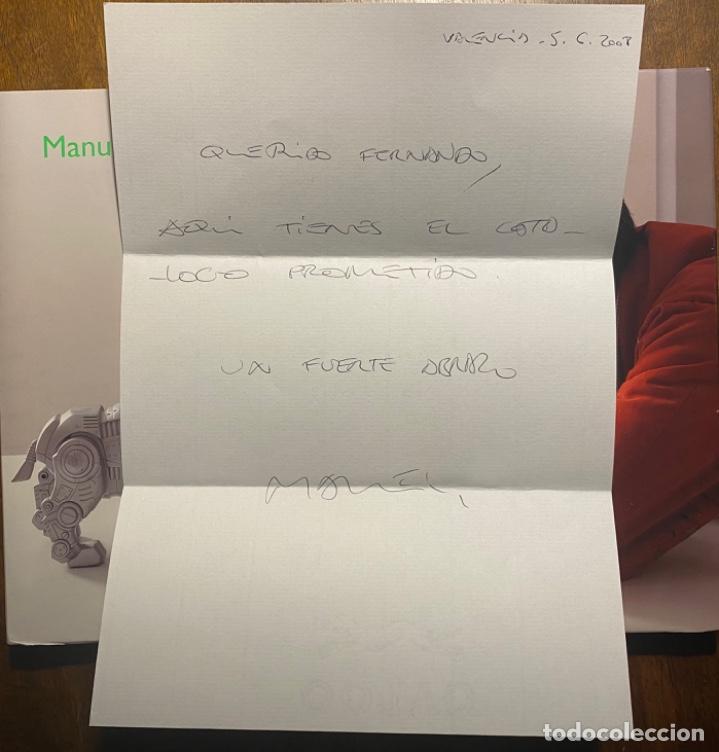 VALENCIA - 5. 6. 2008
Manu
QUERIDO FERNANDO,
AQUI TIENES EL CATA-
-LOGO PROMETIDO.
UN FUERTE ABRAZO
MANUEL,
SP
todocoleccion